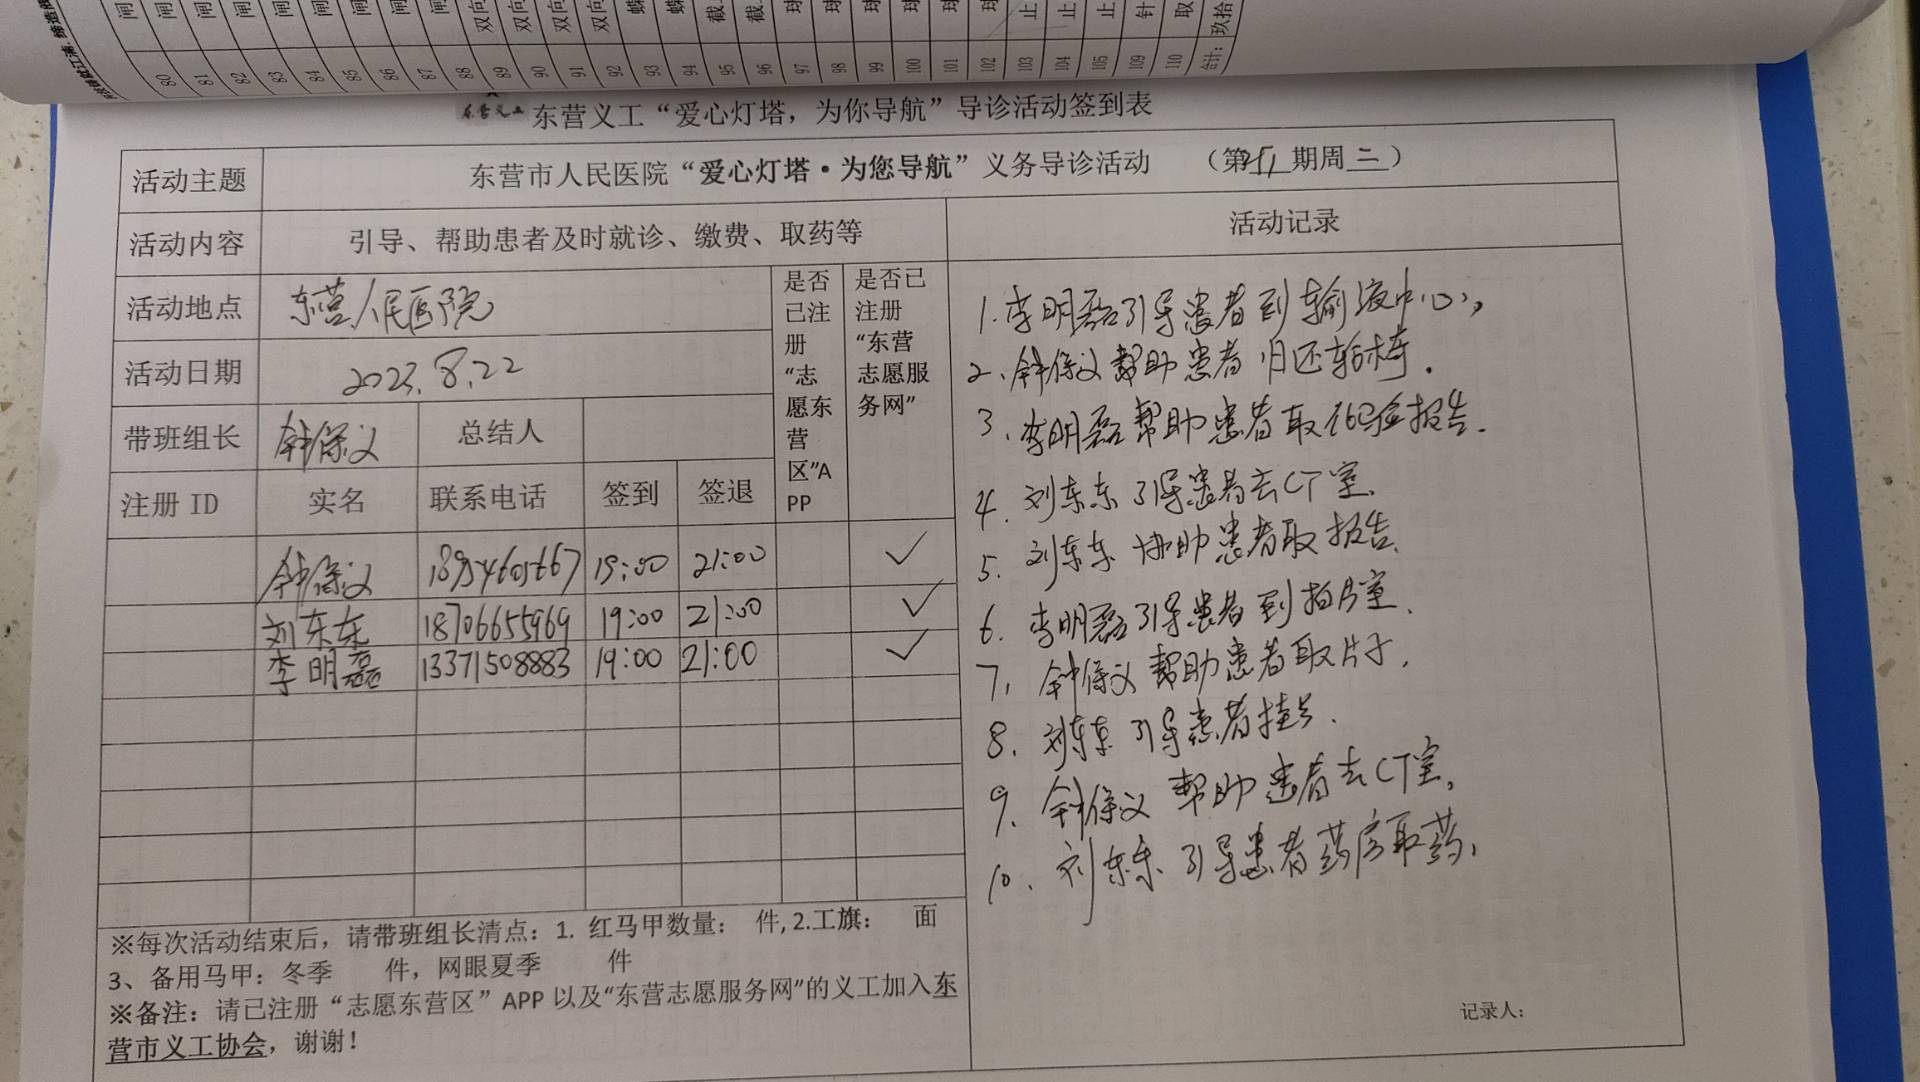 80 81 82 83 84 85 86 87 88 89 90 91 92 93 94 95 96 97 98 99 100 101 102 103 104 105 109 110 合计：
东营义工
东营义工“爱心灯塔，为你导航”导诊活动签到表
活动主题 东营市人民医院“爱心灯塔·为您导航”义务导诊活动 （第 期周二）
活动内容 引导、帮助患者及时就诊、缴费、取药等 活动记录
活动地点 东营人民医院
活动日期 2023.8.22
带班组长 钟保义 总结人
是否
已注
册
“志
愿东
营
区”A
PP
是否已
注册
“东营
志愿服
务网”
注册 ID 实名 联系电话 签到 签退
钟保义 18954605667 19:00 21:00 ✓
刘东东 18706655969 19:00 21:00 ✓
李明磊 13371508883 19:00 21:00 ✓
1.李明磊引导患者到输液中心,
2、钟保义帮助患者归还轮椅.
3、李明磊帮助患者取化验报告.
4. 刘东东引导患者去CT室.
5、刘东东协助患者取报告.
6. 李明磊引导患者到拍片室.
7, 钟保义帮助患者取片子.
8. 刘东东引导患者挂号.
9. 钟保义帮助患者去CT室.
10. 刘东东引导患者药房取药.
※每次活动结束后，请带班组长清点：1. 红马甲数量： 件, 2.工旗： 面
3、备用马甲：冬季 件，网眼夏季 件
※备注：请已注册“志愿东营区”APP 以及“东营志愿服务网”的义工加入东
营市义工协会，谢谢！
记录人：